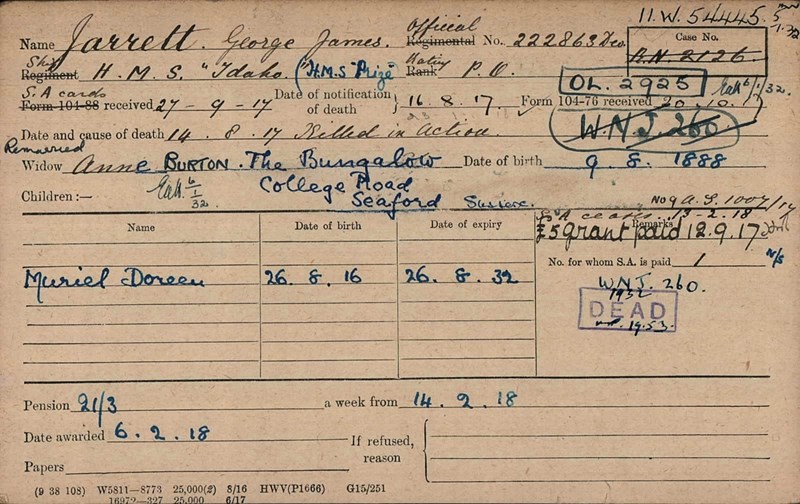 11.W. 54445.5
Name Jarrett. George James. Official Regimental No. 222863 Dev. Case No.
R.N. 2126.
Ship Regiment H. M. S. "Idaho." (H.M.S "Prize") Rating Rank P. O.
OL. 2925
S.A cards Form 104-88 received 27 - 9 - 17 Date of notification of death } 16. 8. 17. Form 104-76 received 20. 10. 17
Date and cause of death 14 . 8 . 17 Killed in Action. W.N.J. 260
Remarried
Widow Anne BURTON. The Bungalow Date of birth 9. 8. 1888
Children:— College Road
Seaford Sussex.
S A ceases. 13-2.18
Name Date of birth Date of expiry Remarks
£5 grant paid 12.9.17
No. for whom S.A. is paid 1
Muriel Doreen 26. 8. 16 26. 8. 32 WNJ. 260.
1932
DEAD
1953.
Pension 21/3 a week from 14. 2. 18
Date awarded 6. 2. 18 If refused, reason
Papers
(9 38 108) W5811—8773 25,000(2) 8/16 HWV(P1666) G15/251
16972—327 25,000 6/17